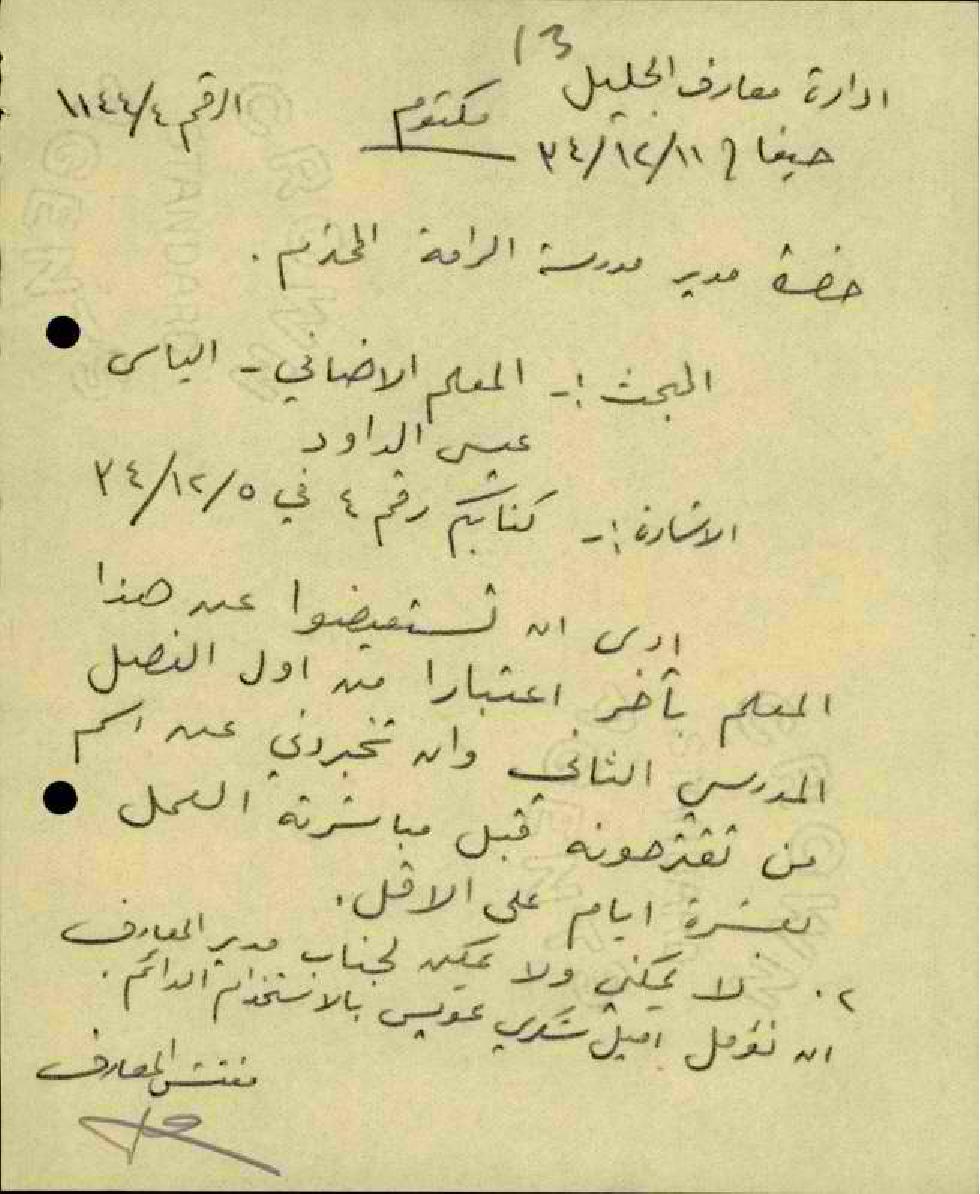 13
ادارة معارف الجليل
مكتوم
الرقم ١١٤٤/٤
حيفا في ٣٤/١٢/١١
حضرة مدير مدرسة الرامة المحترم .
المبحث :- المعلم الاضافي - الياس
عيسى الداود
الاشارة :- كتابكم رقم ٤ في ٣٤/١٢/٥
ارى ان تستعيضوا عن هذا
المعلم بآخر اعتبارا من اول الفصل
المدرسي الثاني وان تخبروني عن اسم
من تقترحونه قبل مباشرته العمل
بعشرة ايام على الاقل .
٢ . لا يمكنني ولا يمكن لجناب مدير المعارف
ان نؤمل اميل شكري عويس بالاستخدام الدائم .
مفتش المعارف